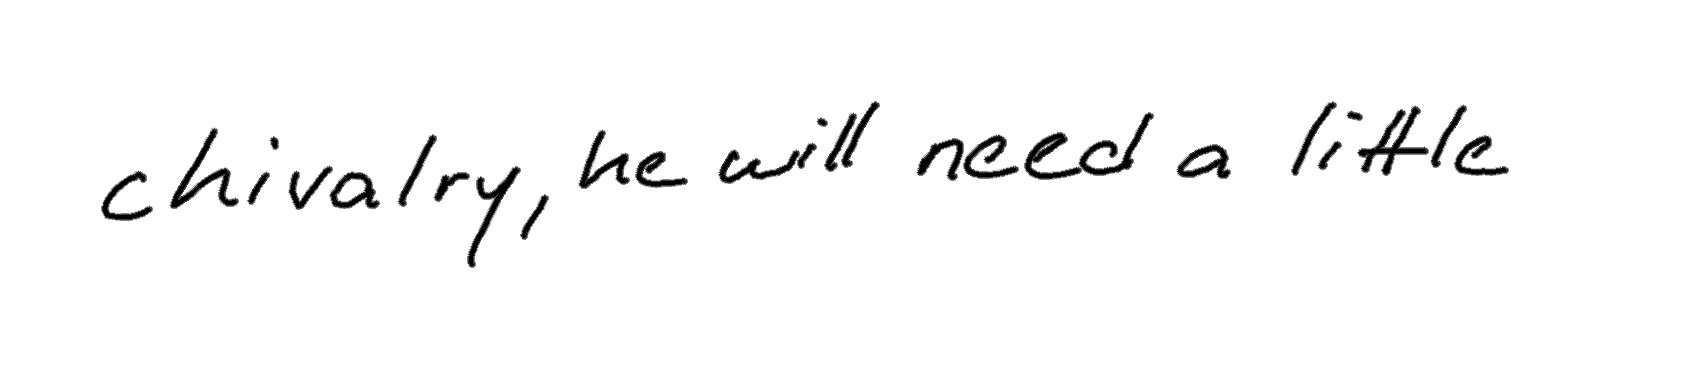 chivalry, he will need a little